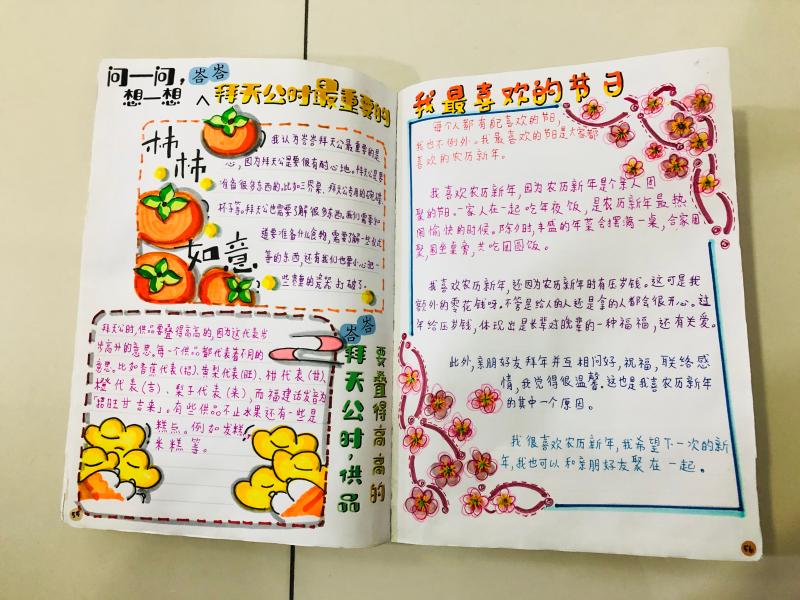 问一问，
想一想
答答
拜天公时最重要的
柿柿
如意
我认为答答拜天公最重要的是
心，因为拜天公是要很有耐心地。拜天公是要
准备很多东西的。比如三界桌、拜天公专用的碗、碟、
杯子等。拜天公也需要了解很多东西。我们需要知
道要准备什么食物，需要了解一些仪式
等的东西，还有我们也要小心把一
些贵重的瓷器打破了。
答答
拜天公时，供品
要叠得高高的
拜天公时，供品要叠得高高的，因为这代表步
步高升的意思。每一个供品都代表着不同的
意思。比如香蕉代表(招)、黄梨代表(旺)、柑代表(甘)、
橙代表(吉)、梨子代表(来)，而福建话发音为
「招旺甘吉来」。有些供品不止水果还有一些是
糕点。例如发糕、
米糕等。
55
我最喜欢的节日
每个人都有自己喜欢的节日，
我也不例外。我最喜欢的节日是大家都
喜欢的农历新年。
我喜欢农历新年，因为农历新年是个亲人团
聚的节日。一家人在一起吃年夜饭，是农历新年最热
闹愉快的时候。除夕时，丰盛的年菜会摆满一桌，合家团
聚，围坐桌旁，共吃团圆饭。
我喜欢农历新年，还因为农历新年时有压岁钱。这可是我
额外的零花钱呀。不管是给人的人还是拿的人都会很开心。过
年给压岁钱，体现出是长辈对晚辈的一种福福，还有关爱。
此外，亲朋好友拜年并互相问好，祝福，联络感
情，我觉得很温馨。这也是我喜农历新年
的其中一个原因。
我很喜欢农历新年，我希望下一次的新
年，我也可以和亲朋好友聚在一起。
56